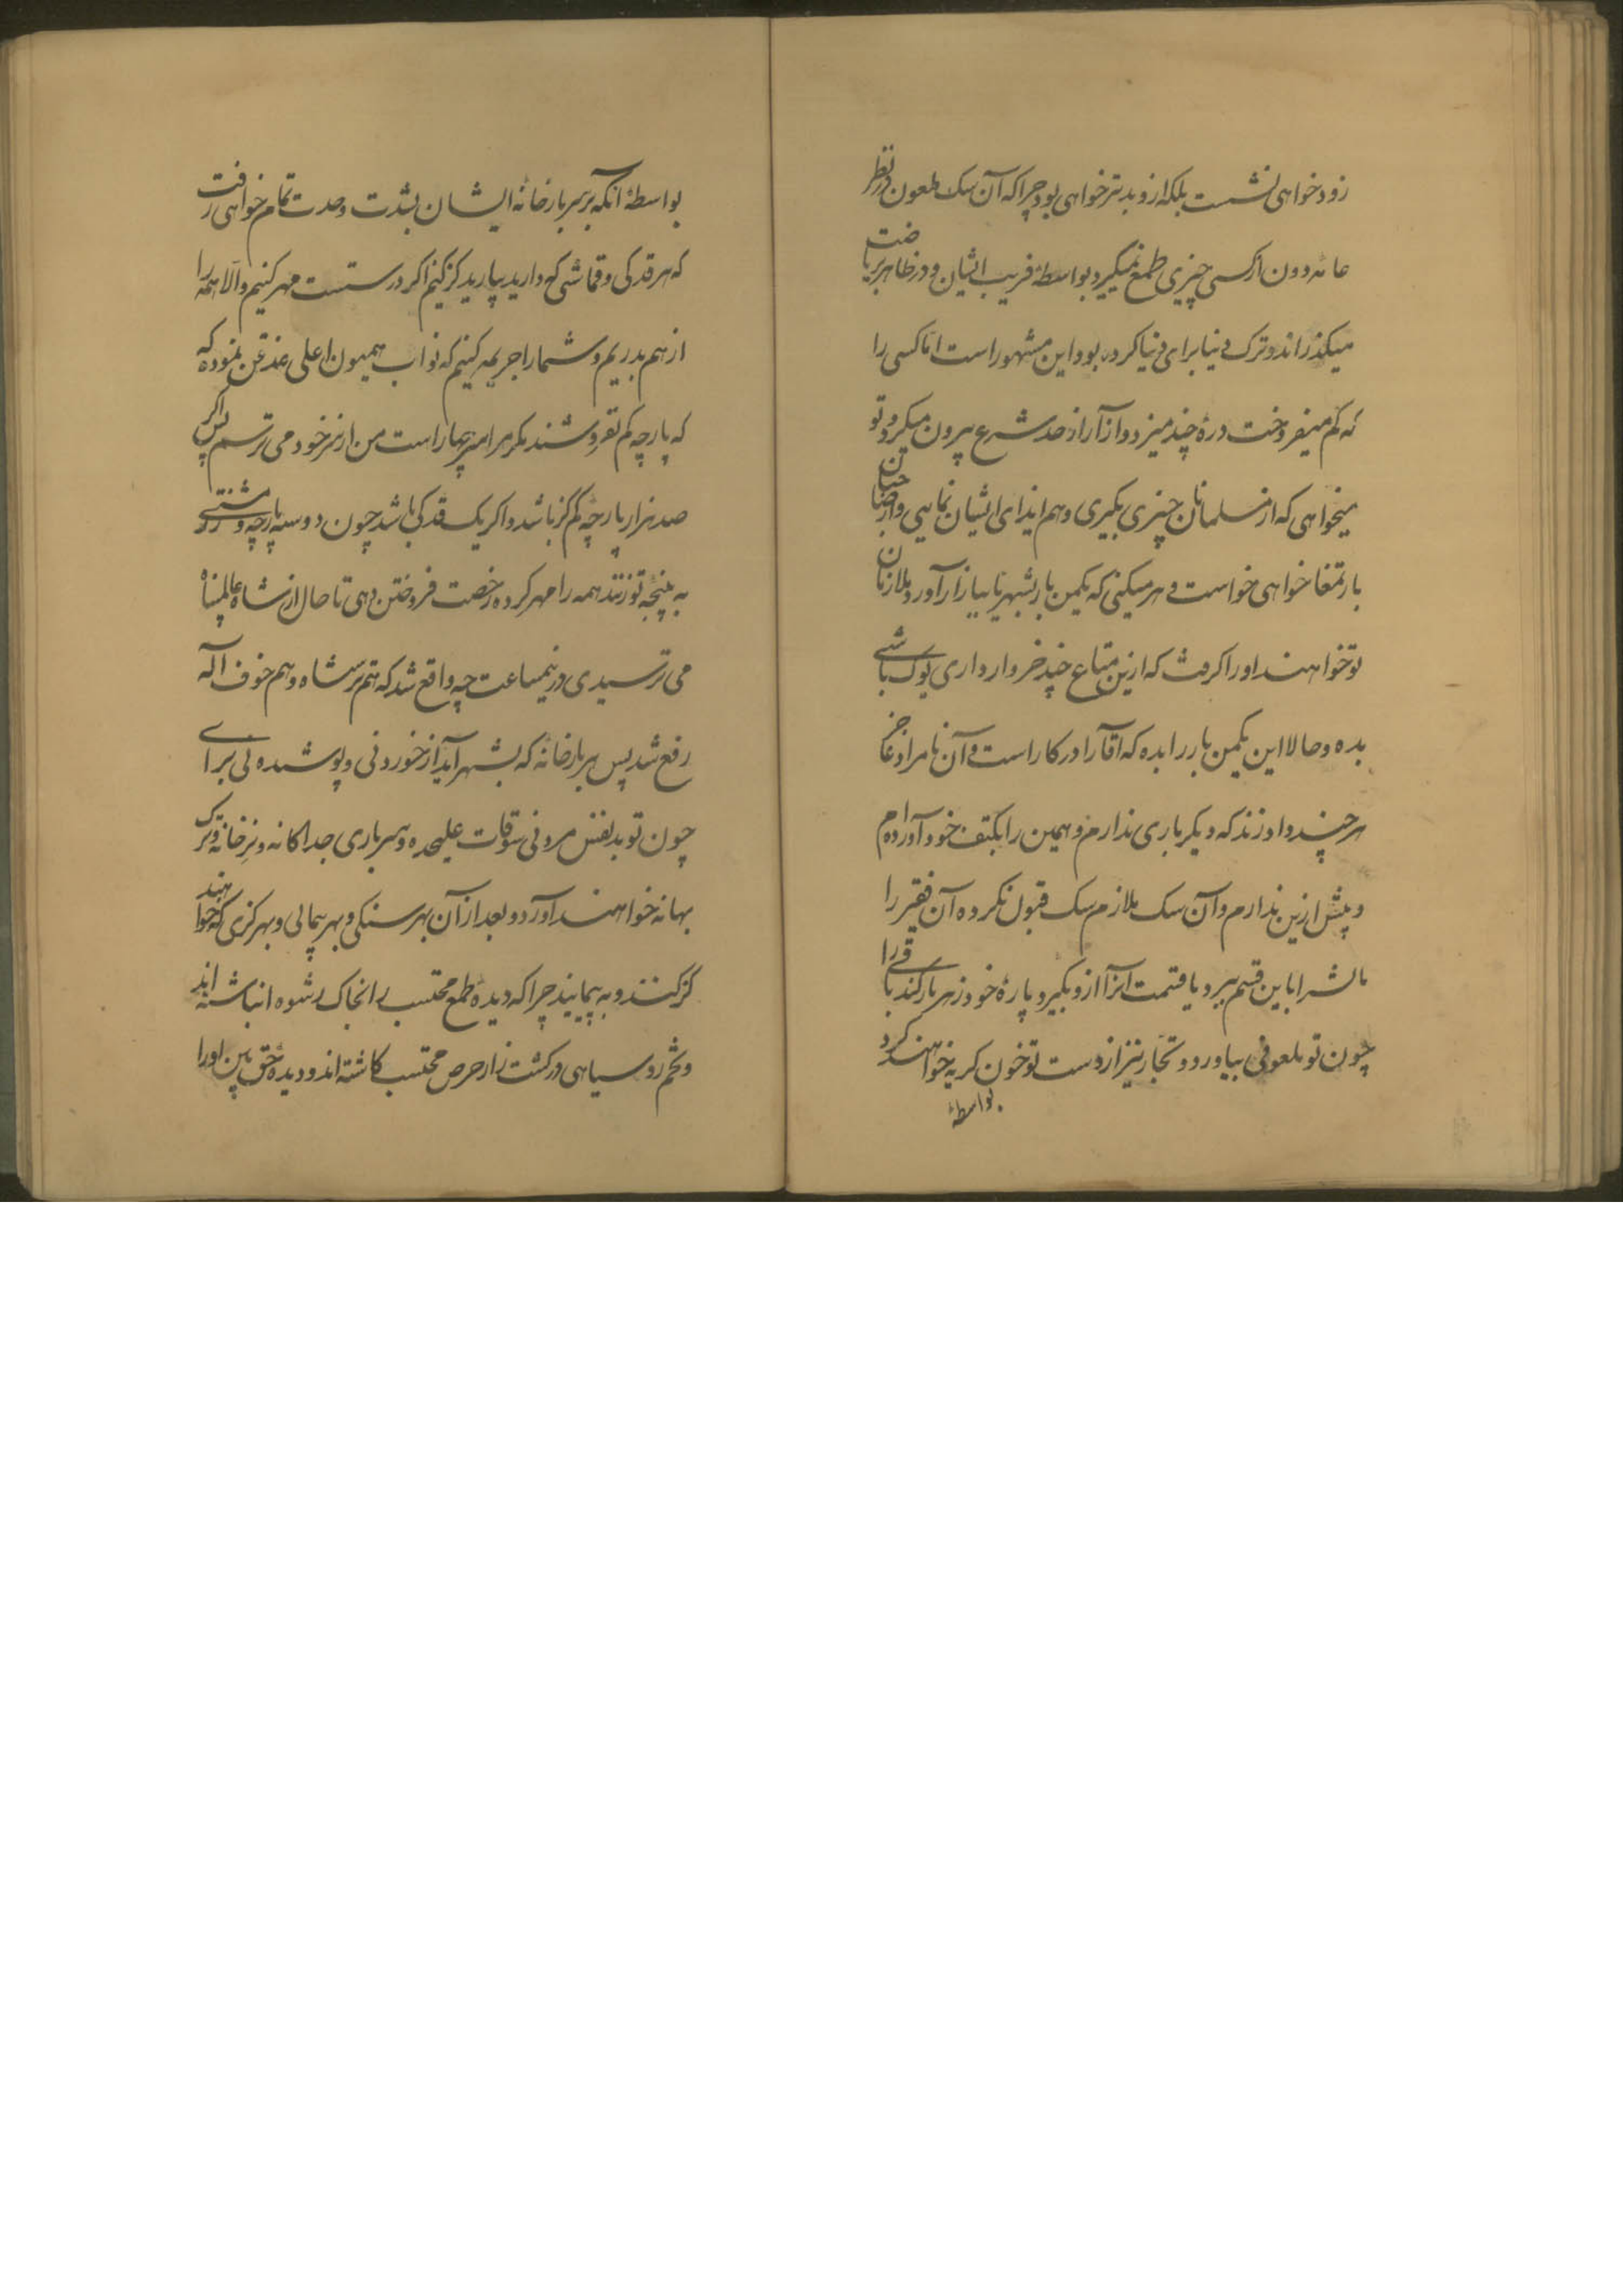 زود خواهی نشست بلکه ازو بدتر خواهی بود چرا که آن سک ملعون در نظر
عامه دون از کسی چیزی طمع نمیکیرد بواسطهٔ فریب ایشان و در ظاهر بریاضت
میکذراند و ترک دنیا برای دنیا کرده بود و این مشهور است اما کسی را
که کم میفروخت درهٔ چند میزد و از آزار از حد شرع بیرون میکرد و تو
میخواهی که از مسلمانان چیزی بکیری و هم ایذای ایشان نمایی و از صاحبان
بار تمغا خواهی خواست و هر میکنی که یکمن بار بشهر یا ببازار آورد ملازمان
تو خواهند او را کرفت که ازین متاع چند خروار داری یوک باشی
بده و حالا این یکمن بار را بده که آقا را در کار است و آن نامراد عاجز
هر چند داد زند که دیکر باری ندارم و همین را بکتف خود آورده ام
و بیش ازین ندارم و آن سک ملازم سک قبول نکرده آن فقیر را
مالش را باین قسم ببرد یا قیمت آنرا ازو بکیرد و پارهٔ خود زهر مار کند باقی را
چون تو ملعونی بیاورد و تجار نیز از دست تو خون کریه خواهند کرد
بواسطهٔ
بواسطهٔ آنکه بر سر بارخانهٔ ایشان بشدت و حدت تمام خواهی رفت
که هر قدکی و قماشی که دارید بیارید کز کنیم اکر درستست مهر کنیم و الا همه را
از هم بدریم و شما را جریمه کنیم که نواب همیون اعلی غدقن نموده که
که پارچه کم نفروشند مکر مرا سر بیمار است من از سر خود می ترسم پس اکر
صد هزار پارچه کم کز باشد و اکر یک قدکی باشد چون دو سه پارچه و مشتی زر
به پنجهٔ تو زنند همه را مهر کرده رخصت فروختن دهی تا حال از شاه عالمپناه
می ترسیدی در نیمساعت چه واقع شد که هم ترس شاه و هم خوف اله
رفع شد پس هر بارخانهٔ که بشهر آید از خوردنی و پوشیدنی برای
چون تو بدنفس مردنی سوقات علیحده و سرباری جداکانه و نرخانه و ترک
بهانه خواهند آورد و بعد از آن بهر سنکی و بهر پیمالی و بهر کزی که خواهند
کز کنند و به پیمایند چرا که دیدهٔ طمع محتسب را بخاک رشوه انباشته اند
و تخم رو سیاهی در کشت زار حرص محتسب کاشته اند و دیدهٔ حق بین او را